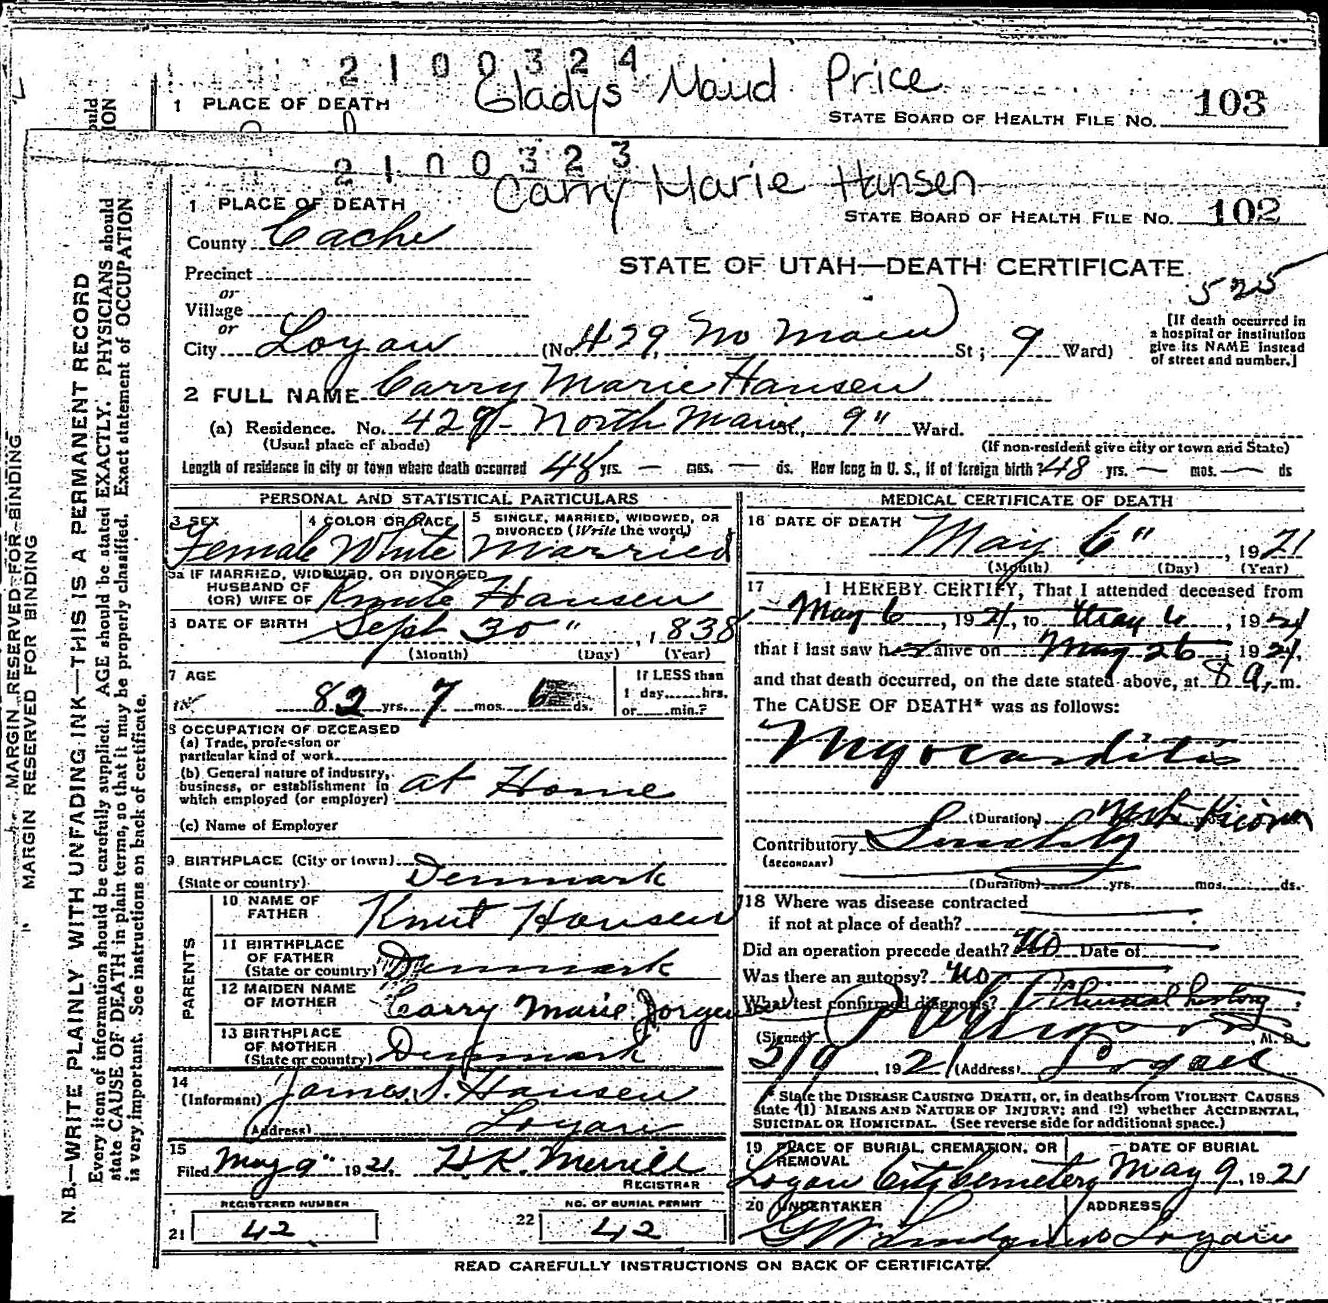 2100324
Gladys Maud Price
1 PLACE OF DEATH
STATE BOARD OF HEALTH FILE NO. 103
2100323
Carry Marie Hansen
1 PLACE OF DEATH
STATE BOARD OF HEALTH FILE NO. 102
County Cache
STATE OF UTAH—DEATH CERTIFICATE
Precinct
525
or
Village
or
City Logan (No. 429 No Main St; 9 Ward)
[If death occurred in
a hospital or institution
give its NAME instead
of street and number.]
2 FULL NAME Carry Marie Hansen
(a) Residence. No. 429 - North Main St., 9" Ward.
(Usual place of abode) (If non-resident give city or town and State)
Length of residence in city or town where death occurred 48 yrs. — mos. — ds. How long in U. S., if of foreign birth? 48 yrs. — mos. — ds
PERSONAL AND STATISTICAL PARTICULARS
3 SEX Female
4 COLOR OR RACE White
5 SINGLE, MARRIED, WIDOWED, OR
DIVORCED (Write the word)
Married
5a IF MARRIED, WIDOWED, OR DIVORCED
HUSBAND OF
(OR) WIFE OF Knute Hansen
6 DATE OF BIRTH Sept 30", 1838
(Month) (Day) (Year)
7 AGE
82 yrs. 7 mos. 6 ds.
If LESS than
1 day......hrs.
or......min.?
8 OCCUPATION OF DECEASED
(a) Trade, profession or
particular kind of work
(b) General nature of industry,
business, or establishment in
which employed (or employer) at Home
(c) Name of Employer
9. BIRTHPLACE (City or town)
(State or country) Denmark
PARENTS
10 NAME OF
FATHER Knut Hansen
11 BIRTHPLACE
OF FATHER
(State or country) Denmark
12 MAIDEN NAME
OF MOTHER Carry Marie
13 BIRTHPLACE
OF MOTHER
(State or country) Denmark
14
(Informant) James S. Hansen
(Address) Logan
15
Filed May 9" 1921. H.K. Merrill
REGISTRAR
REGISTERED NUMBER
21 42
NO. OF BURIAL PERMIT
22 42
MEDICAL CERTIFICATE OF DEATH
16 DATE OF DEATH
May 6", 1921
(Month) (Day) (Year)
17 I HEREBY CERTIFY, That I attended deceased from
May 6, 1921, to May 6, 1921
that I last saw h alive on May 26, 1921,
and that death occurred, on the date stated above, at 8 a, m.
The CAUSE OF DEATH* was as follows:
Myocarditis
(Duration)
Contributory Senility
(SECONDARY)
(Duration) yrs. mos. ds.
18 Where was disease contracted
if not at place of death?
Did an operation precede death? No Date of
Was there an autopsy? No
What test confirmed diagnosis? history
(Signed) M. D.
5/9, 1921 (Address) Logan
* State the DISEASE CAUSING DEATH, or, in deaths from VIOLENT CAUSES
state (1) MEANS AND NATURE OF INJURY; and (2) whether ACCIDENTAL,
SUICIDAL OR HOMICIDAL. (See reverse side for additional space.)
19 PLACE OF BURIAL, CREMATION, OR
REMOVAL
Logan City Cemetery
DATE OF BURIAL
May 9, 1921
20 UNDERTAKER
ADDRESS
Logan
READ CAREFULLY INSTRUCTIONS ON BACK OF CERTIFICATE.
MARGIN RESERVED FOR BINDING
MARGIN RESERVED FOR BINDING
N. B.—WRITE PLAINLY WITH UNFADING INK—THIS IS A PERMANENT RECORD
Every item of information should be carefully supplied. AGE should be stated EXACTLY. PHYSICIANS should
state CAUSE OF DEATH in plain terms, so that it may be properly classified. Exact statement of OCCUPATION
is very important. See instructions on back of certificate.